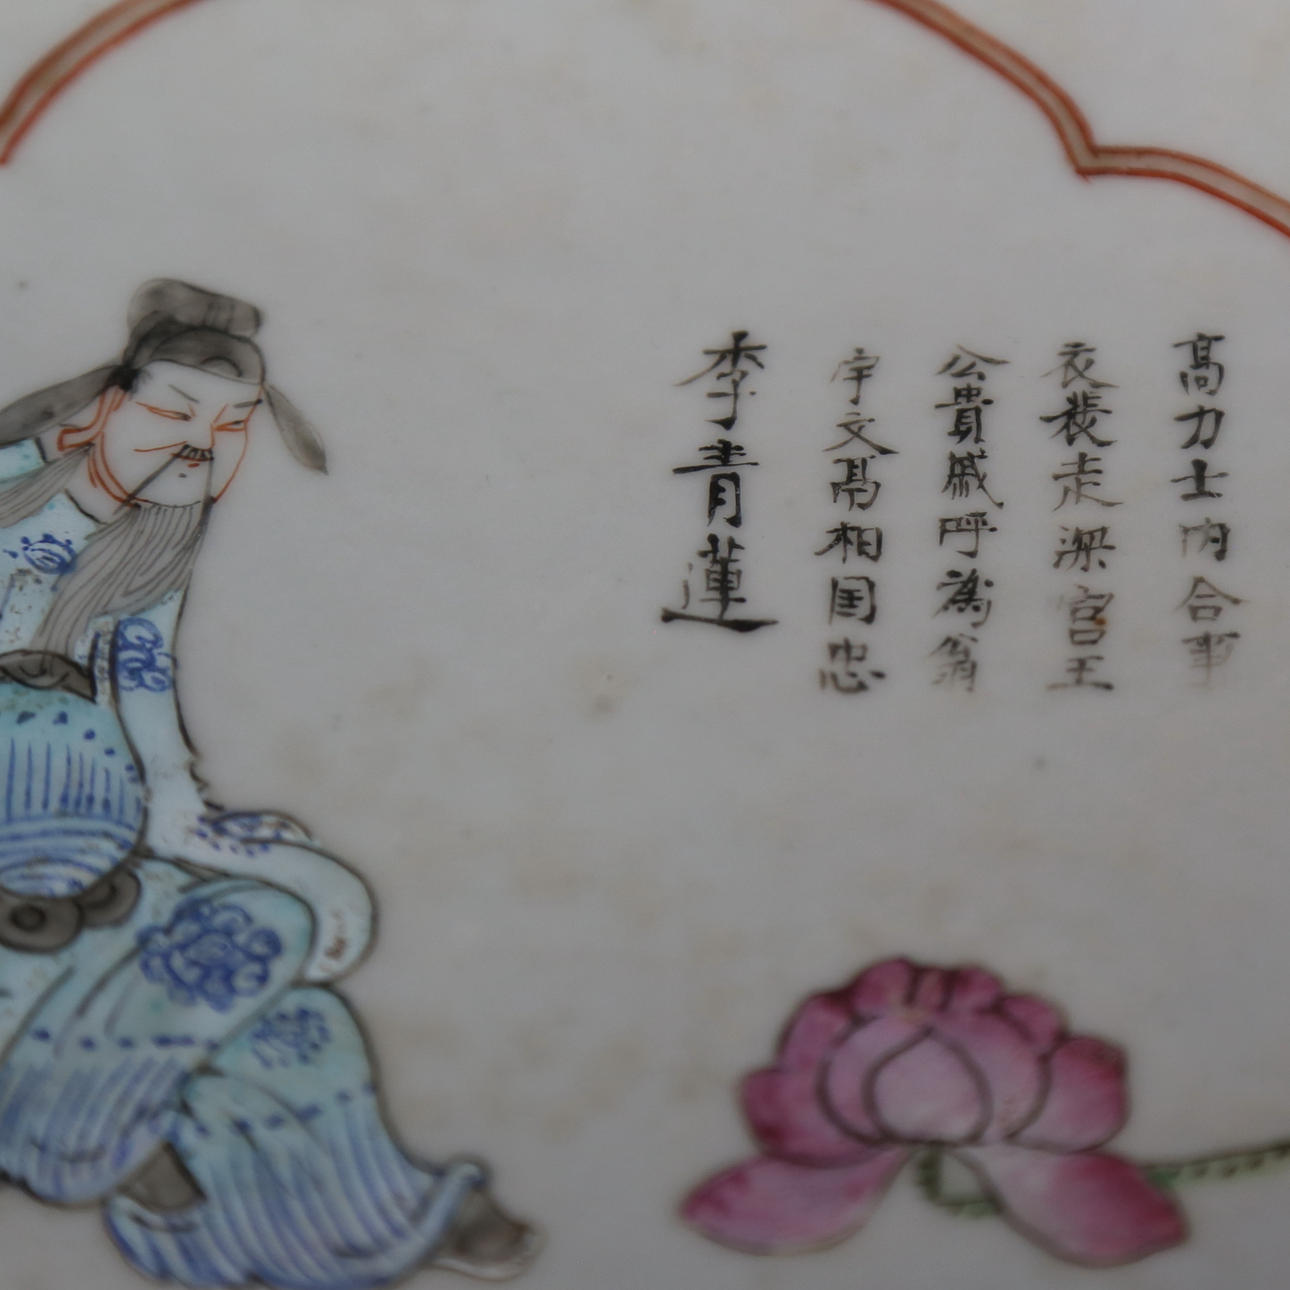 高力士内合事
衣裴走深宫王
公貴戚呼為翁
宇文髙相国忠
李青蓮